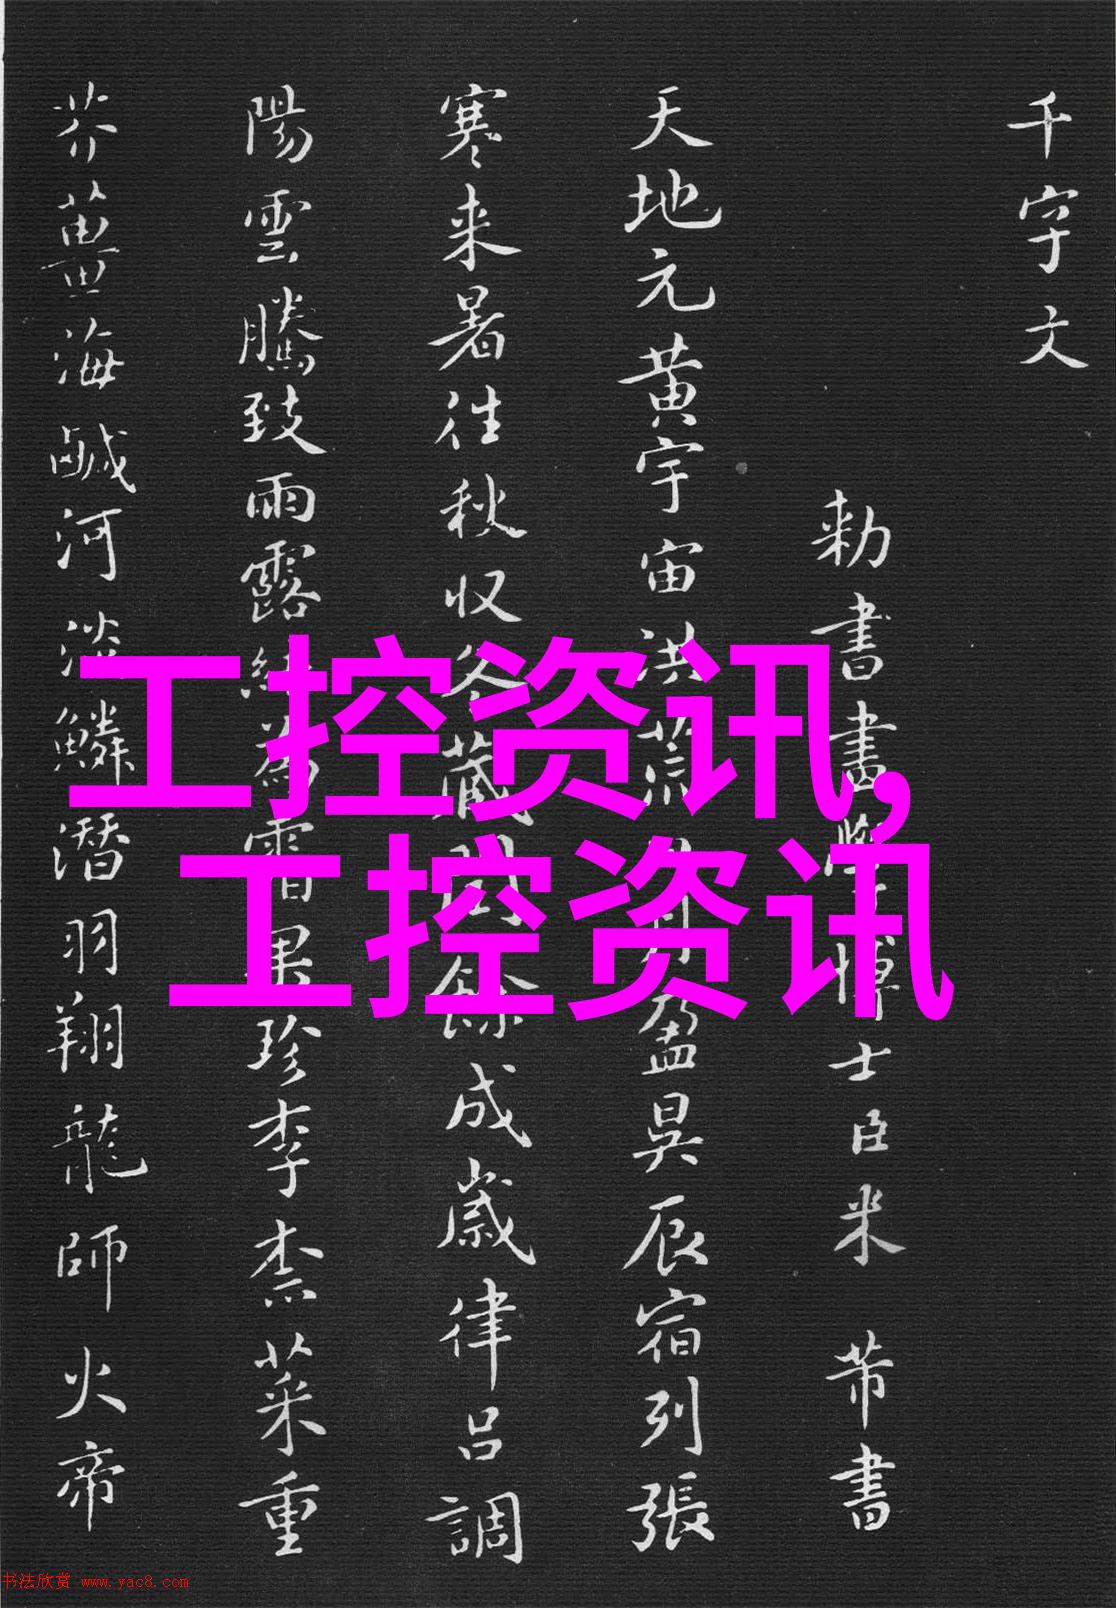 千字文
勅書畫學博士臣米芾書
天地元黄宇宙洪荒日月盈昃辰宿列張
寒来暑往秋収冬藏閏餘成歲律吕調
陽雲騰致雨露結為霜果珍李柰菜重
芥薑海鹹河淡鱗潜羽翔龍師火帝
工控资讯,
工控资讯
书法欣赏 www.yac8.com